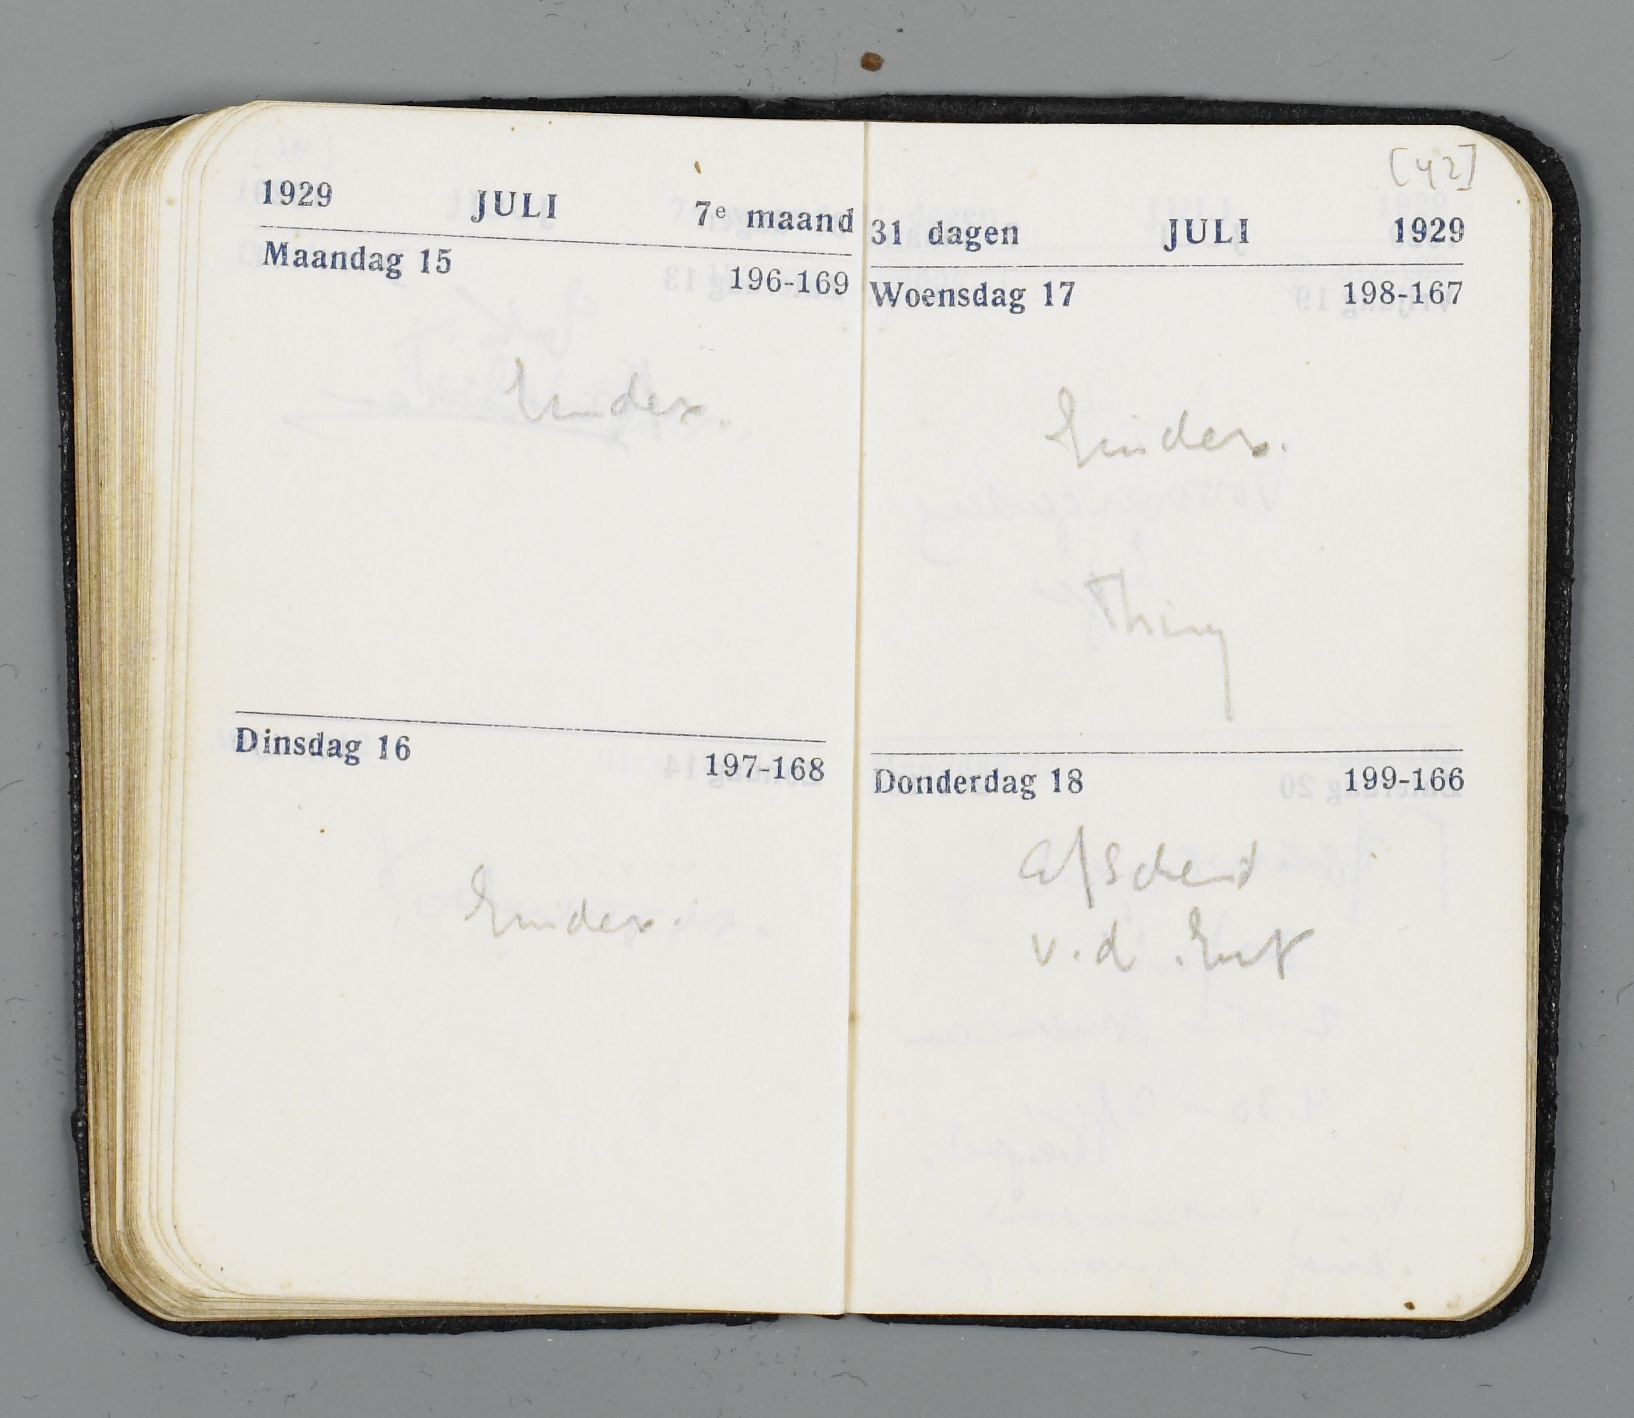 1929 JULI 7e maand
Maandag 15 196-169
Eindex.
Dinsdag 16 197-168
Eindex.
[42]
31 dagen JULI 1929
Woensdag 17 198-167
Eindex.
Donderdag 18 199-166
Afscheid
v.d.